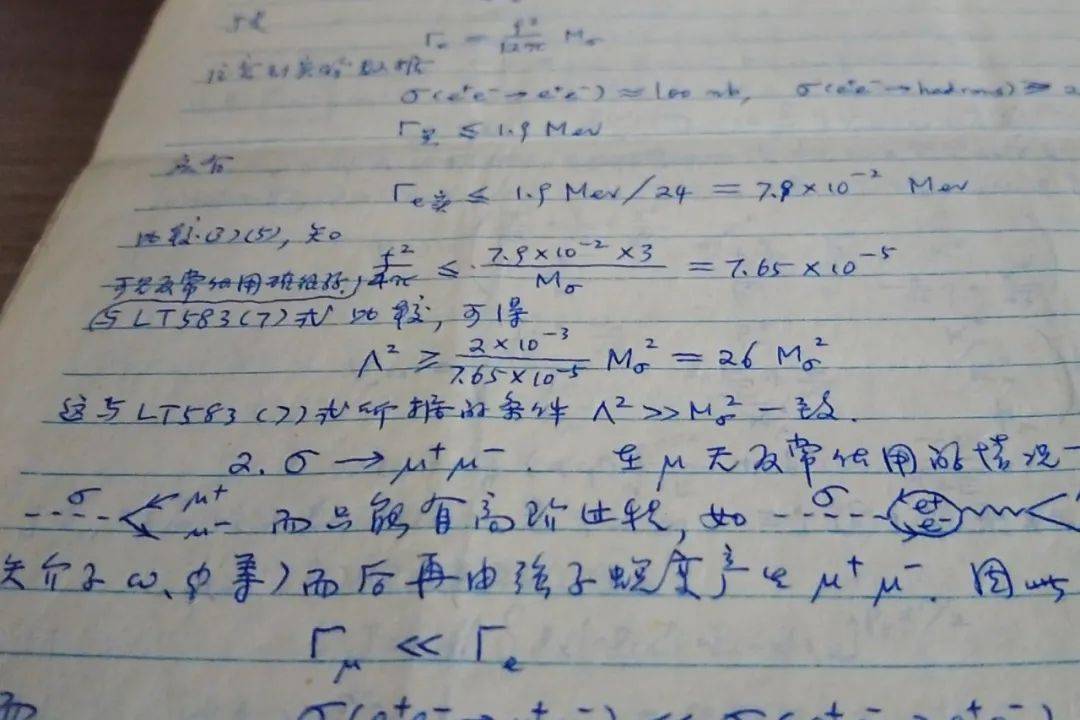 于是
Γe = f²/12π Mσ
注意到实验数据
σ(e⁺e⁻→e⁺e⁻) ≈ 100 nb, σ(e⁺e⁻→hadrons) ≈ 2
Γ ≤ 1.9 Mev
应有
Γe ≤ 1.9 Mev/24 = 7.9×10⁻² Mev
比较(3)(5), 知
f²/4π ≤ 7.9×10⁻²×3/Mσ = 7.65×10⁻⁵
与LT583(7)式比较, 可得
Λ² ≥ 2×10⁻³/7.65×10⁻⁵ Mσ² = 26 Mσ²
这与LT583(7)式所据的条件 Λ²>>Mσ² 一致.
2. σ → μ⁺μ⁻. 在μ无反常作用的情况
σ μ⁺ μ⁻ 而只能有高阶过程, 如 σ e⁺ e⁻
矢介子ω、φ等)而后再由强子蜕变产生 μ⁺μ⁻. 因此
Γμ << Γe
而